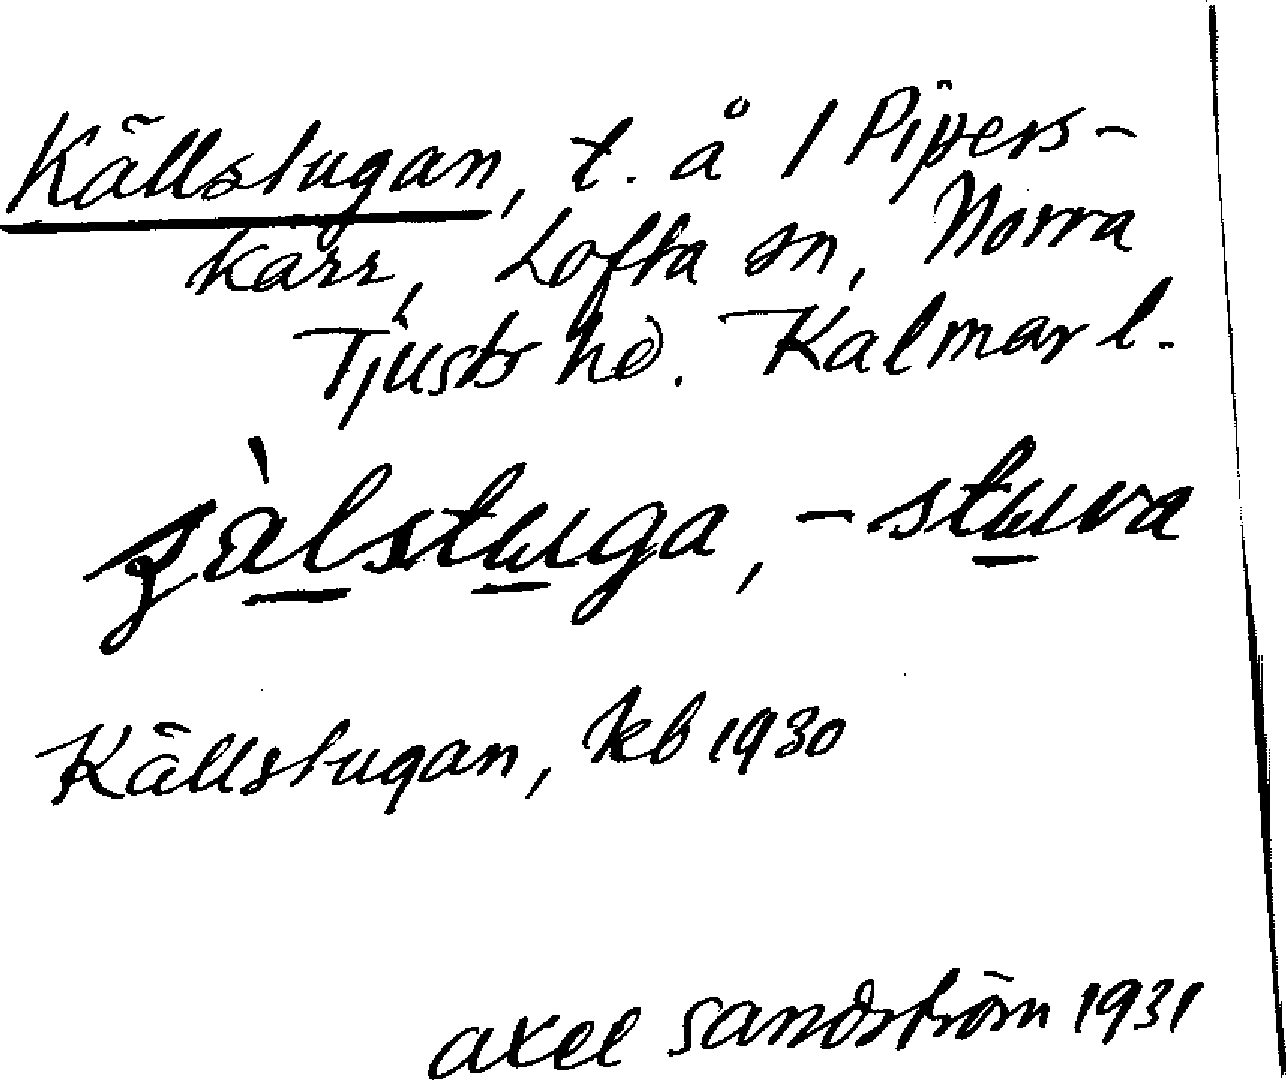 Källstugan, t. å 1 Pipers-
kärr, Lofta sn, Norra
Tjusts hd. Kalmar l.
çä̀lstuga, -stuva
Källstugan, kb 1930
Axel Sandström 1931